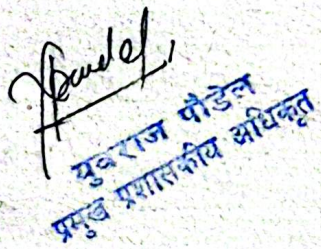 युवराज पौडेल
प्रमुख प्रशासकीय अधिकृत